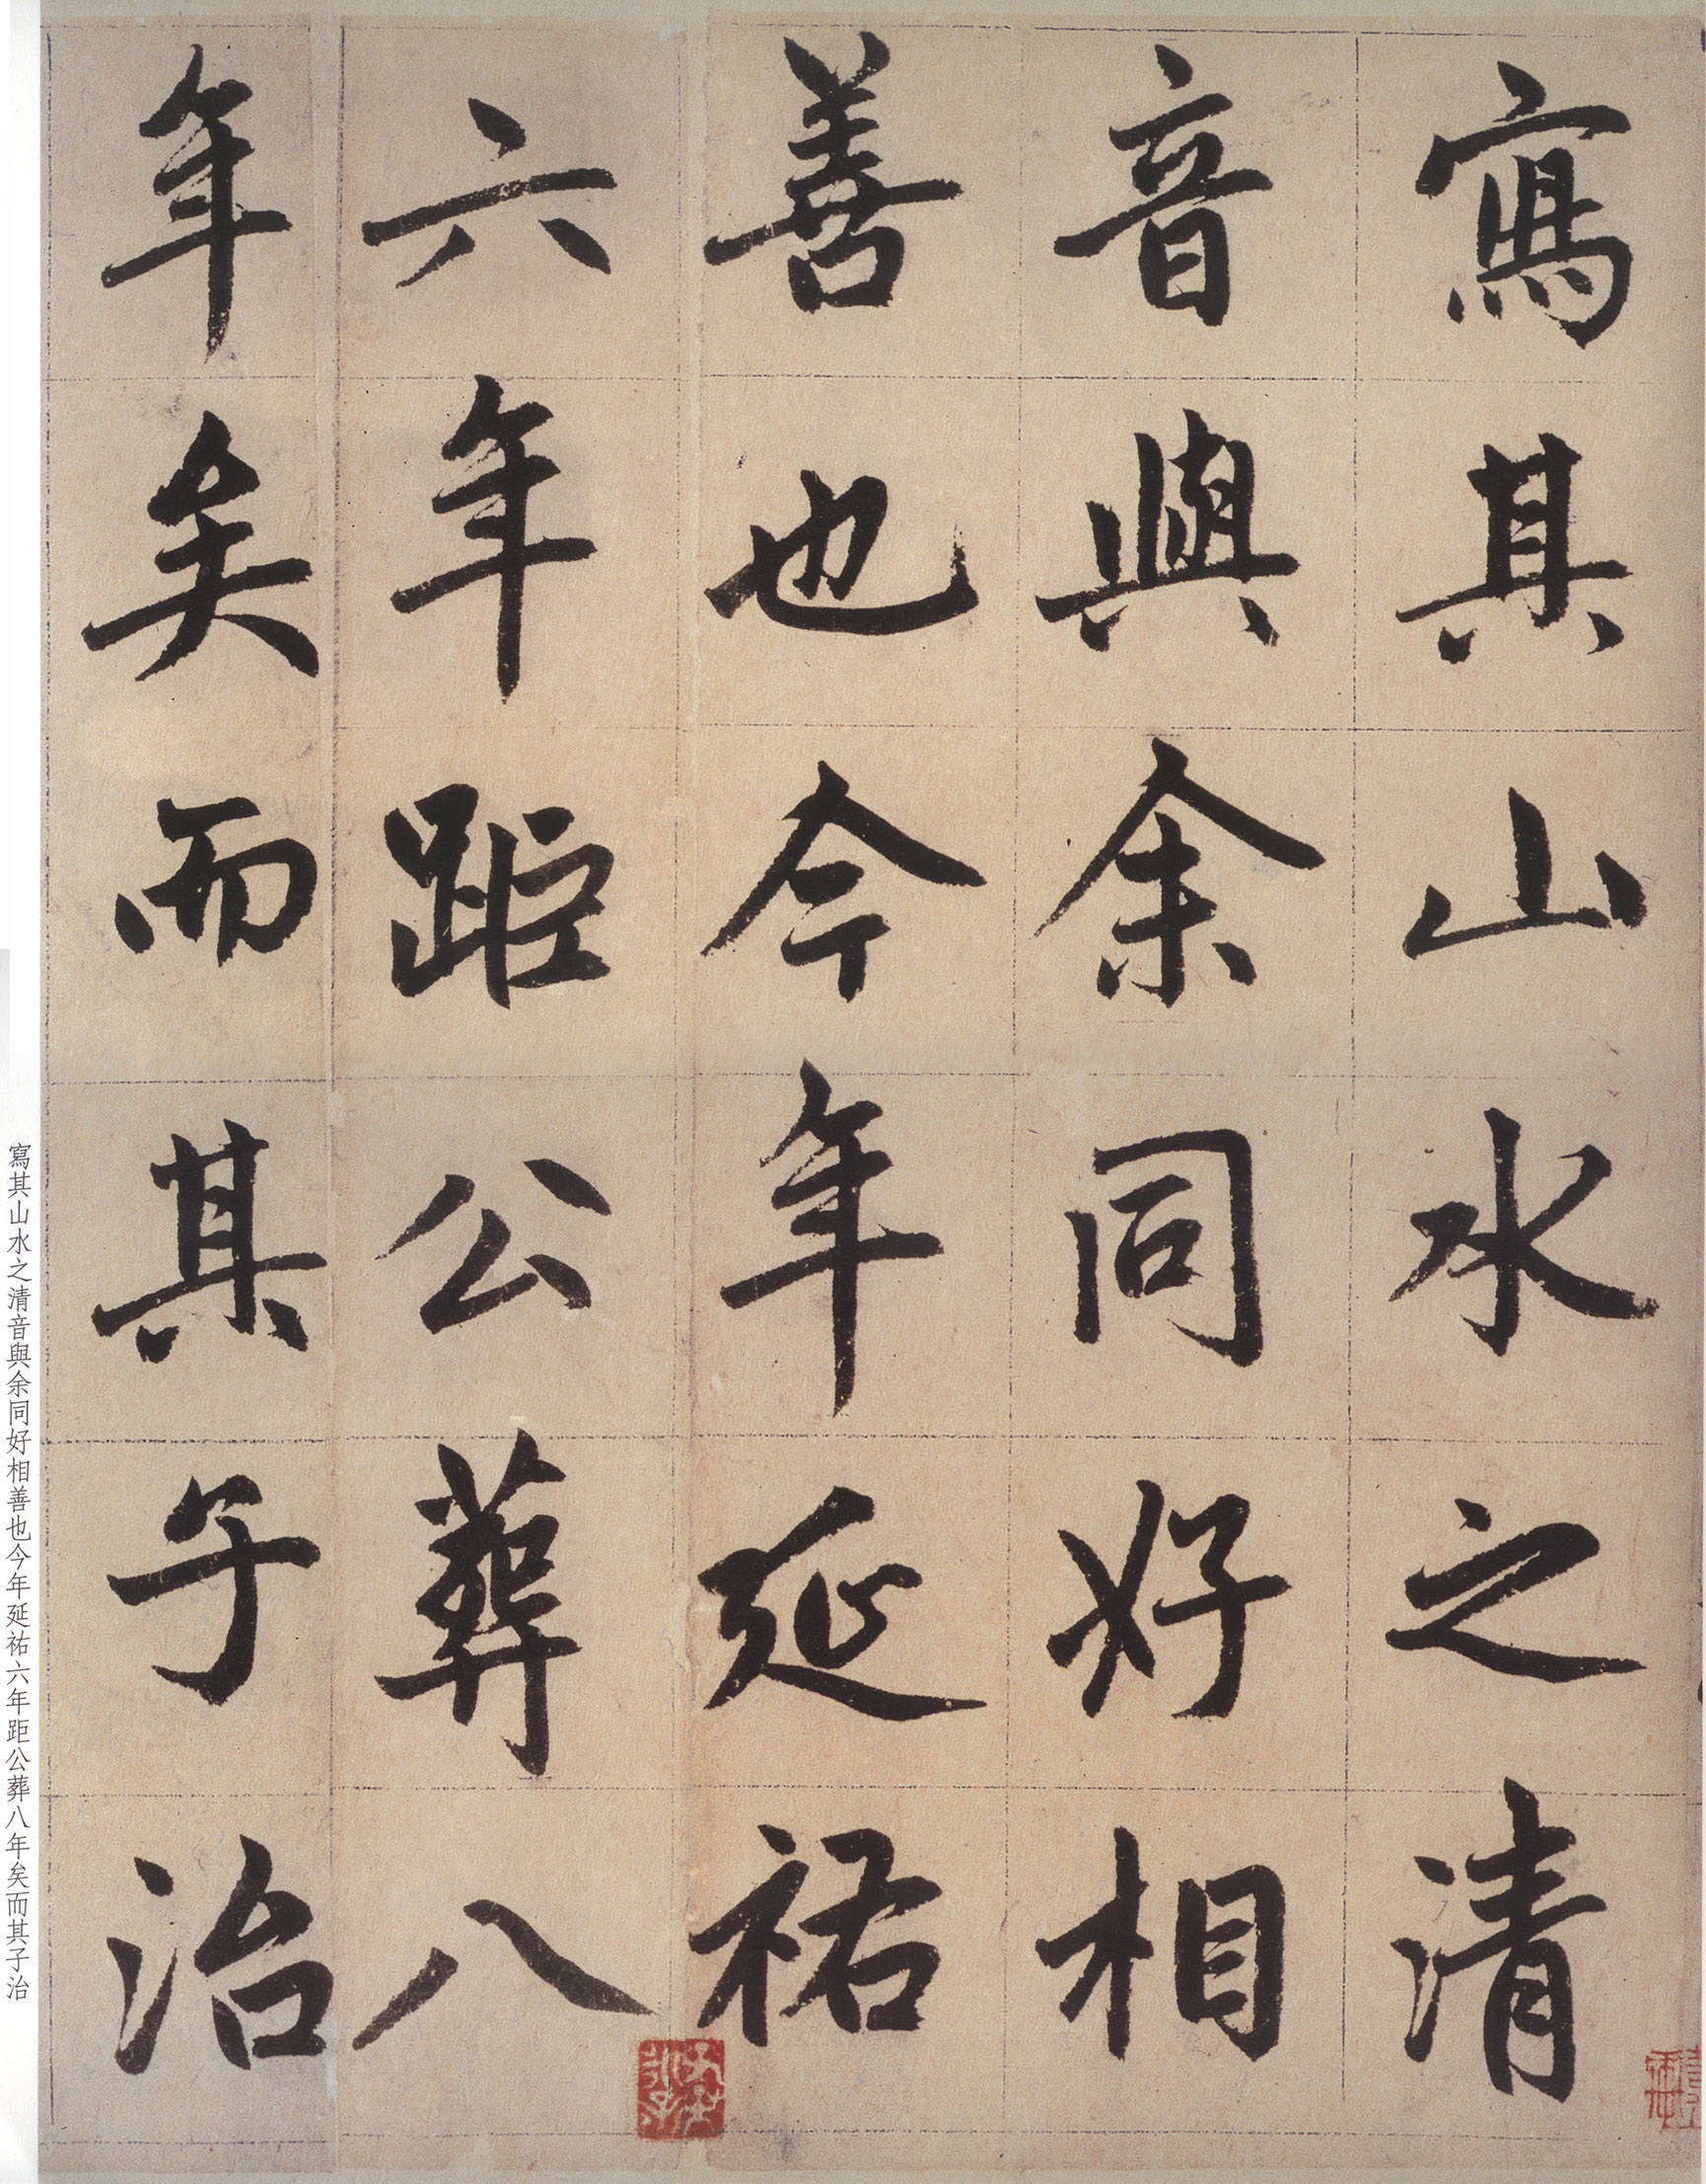 寫其山水之清
音與余同好相
善也今年延祐
六年距公葬八
年矣而其子治
寫其山水之清音與余同好相善也今年延祐六年距公葬八年矣而其子治